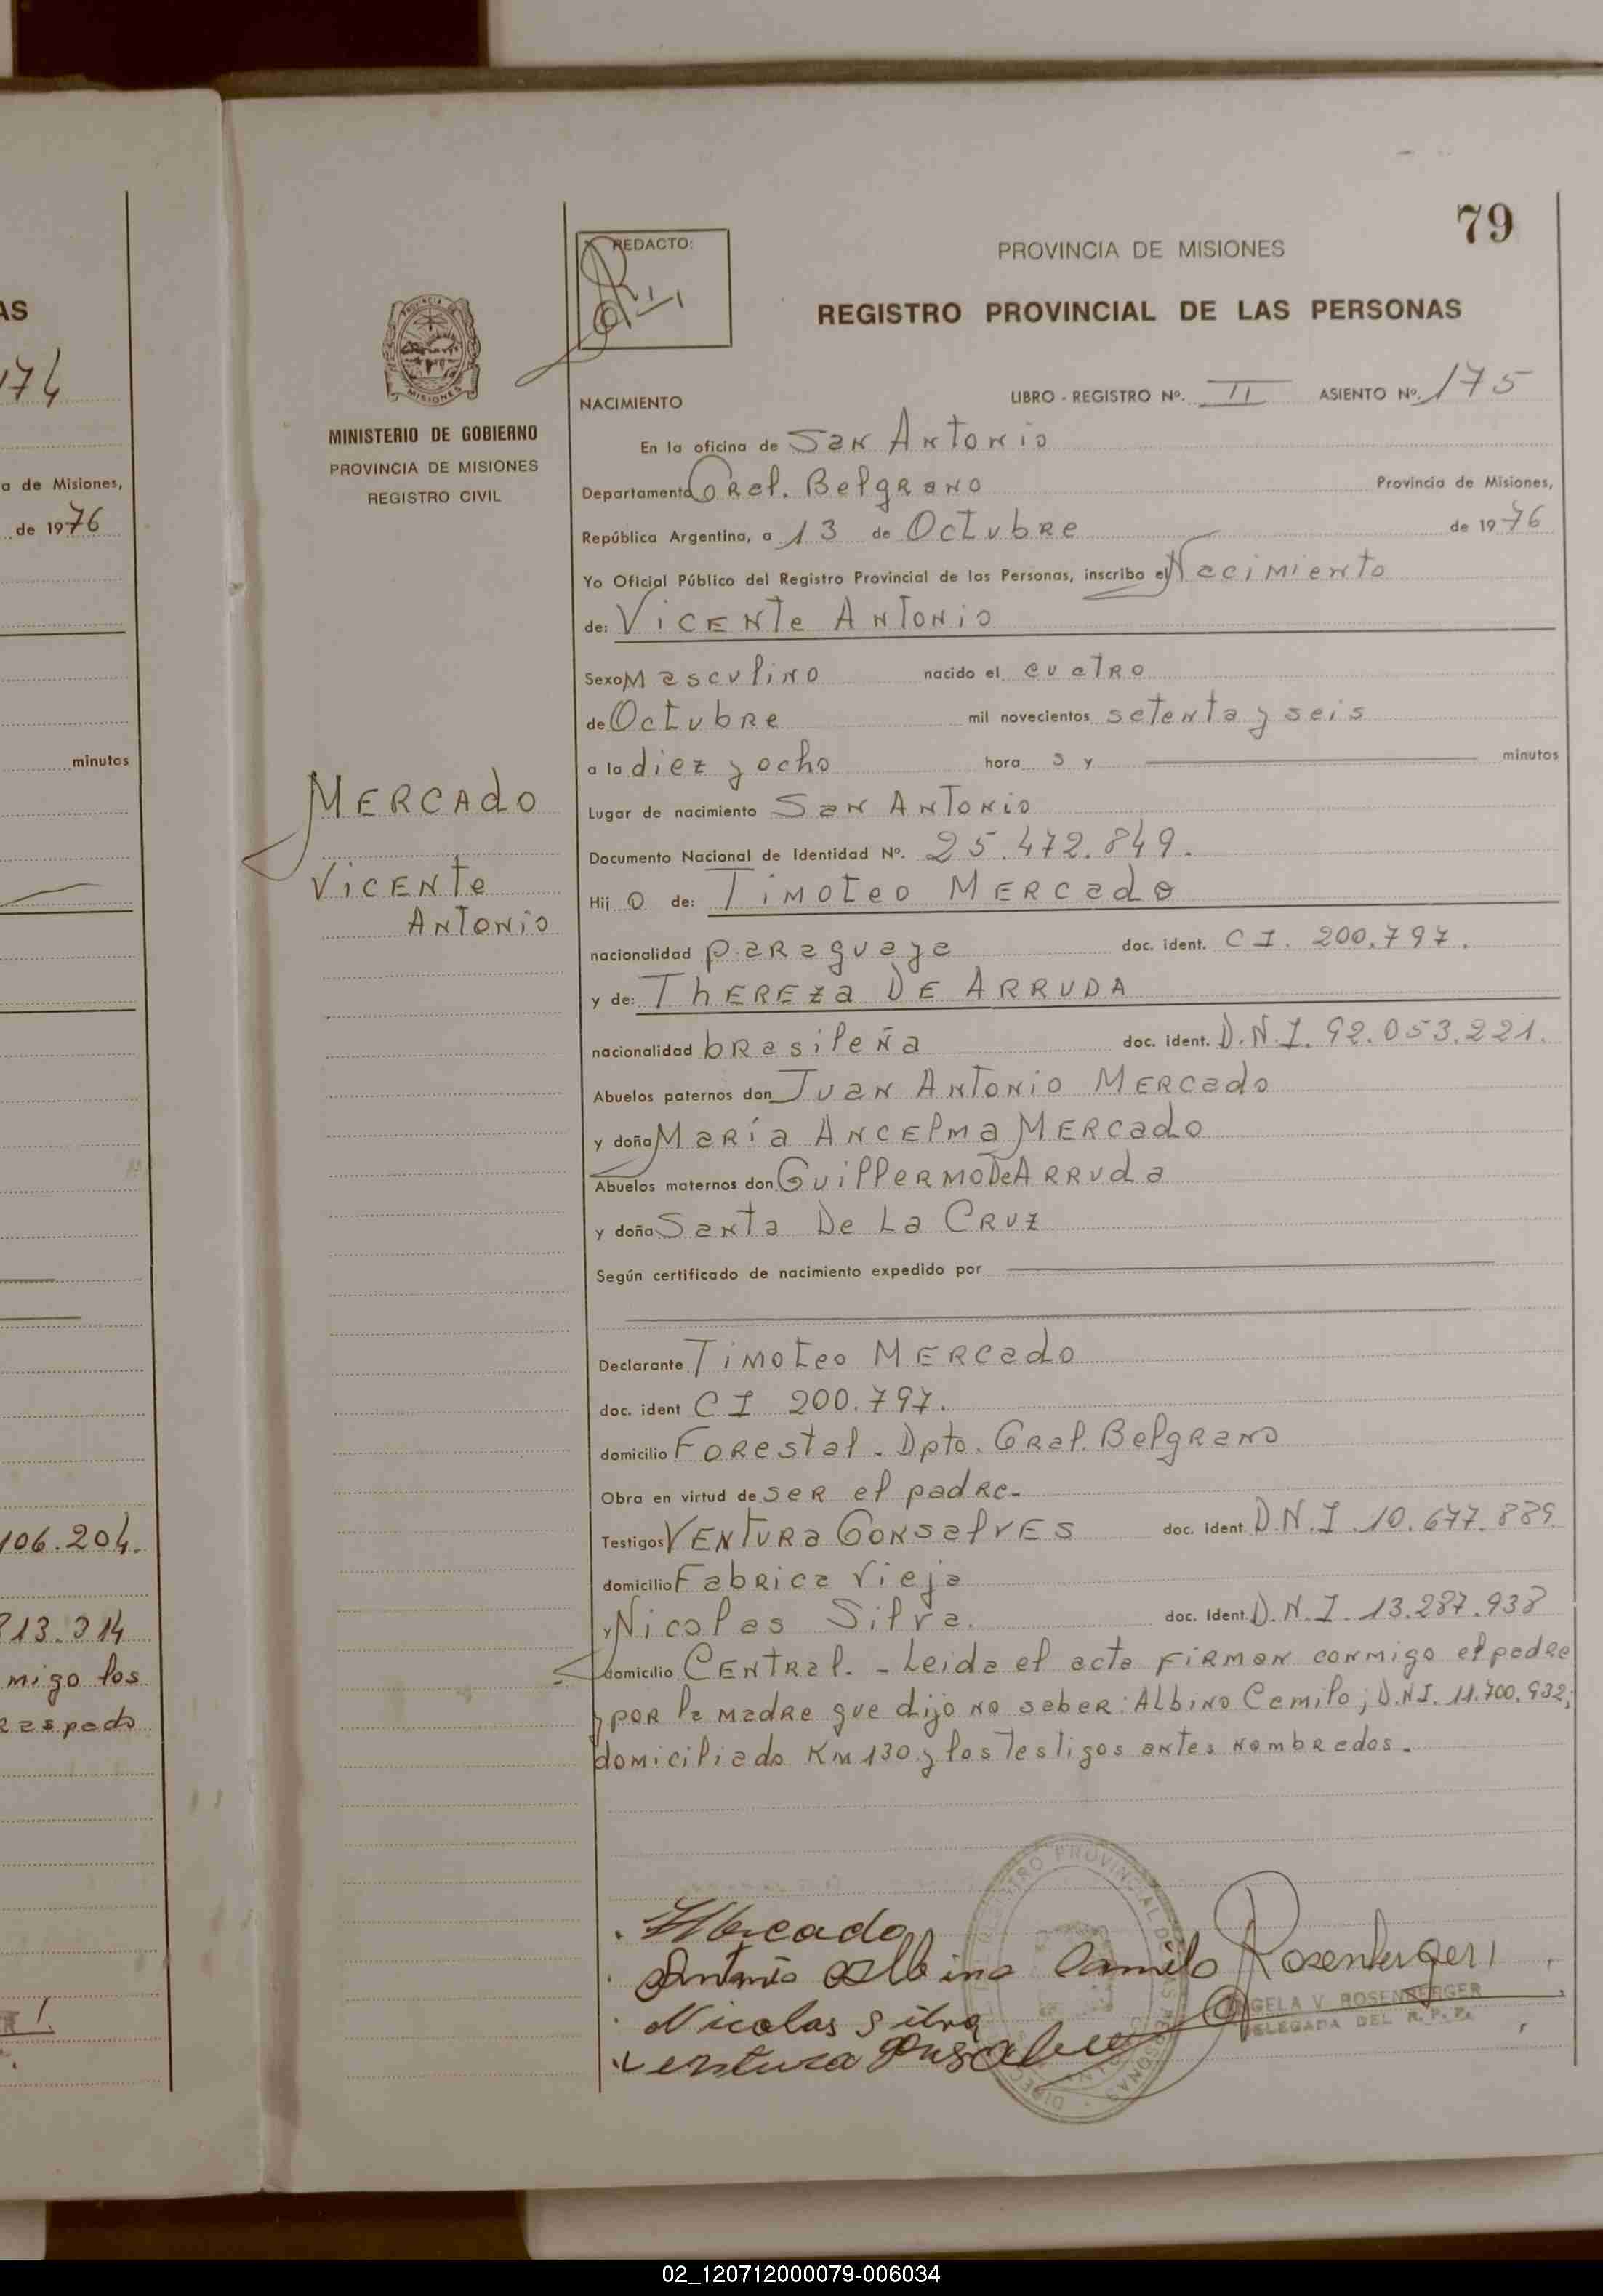 AS
174
a de Misiones,
de 1976
minutos
106.204.
813.314
migo los
79
REDACTO:
PROVINCIA DE MISIONES
REGISTRO PROVINCIAL DE LAS PERSONAS
PROVINCIA DE
MISIONES
MINISTERIO DE GOBIERNO
PROVINCIA DE MISIONES
REGISTRO CIVIL
MERCAdo
VICENTe
ANTONio
NACIMIENTO LIBRO - REGISTRO Nº. II ASIENTO Nº. 175
En la oficina de San Antonio
Departamento Gral. Belgrano Provincia de Misiones,
República Argentina, a 13 de Octubre de 1976
Yo Oficial Público del Registro Provincial de las Personas, inscribo el Nacimiento
de: Vicente Antonio
Sexo Masculino nacido el cuatro
de Octubre mil novecientos setenta y seis
a la diez y ocho hora s y minutos
Lugar de nacimiento San Antonio
Documento Nacional de Identidad Nº. 25.472.849.
Hij o de: Timoteo Mercado
nacionalidad paraguaya doc. ident. C I. 200.797.
y de: Thereza De Arruda
nacionalidad brasileña doc. ident. D.N.I. 92.053.221.
Abuelos paternos don Juan Antonio Mercado
y doña María Ancelma Mercado
Abuelos maternos don Guillermo De Arruda
y doña Santa De La Cruz
Según certificado de nacimiento expedido por
Declarante Timoteo Mercado
doc. ident C I 200.797.
domicilio Forestal. Dpto. Gral. Belgrano
Obra en virtud de ser el padre.
Testigos Ventura Gonsalves doc. ident. D.N.I. 10.677.889.
domicilio Fabrica Vieja
y Nicolas Silva. doc. Ident. D.N.I. 13.287.938
domicilio Central. - Leida el acta firman conmigo el padre
y por la madre que dijo no saber: Albino Camilo; D.N.I. 11.700.932;
domiciliado Km 130 y los testigos antes nombrados.
Mercado
Antonio Albino Camilo Rosenberger
Nicolas Silva
Ventura Gonsalve
ANGELA V. ROSENBERGER
DELEGADA DEL R. P. P.
02_120712000079-006034